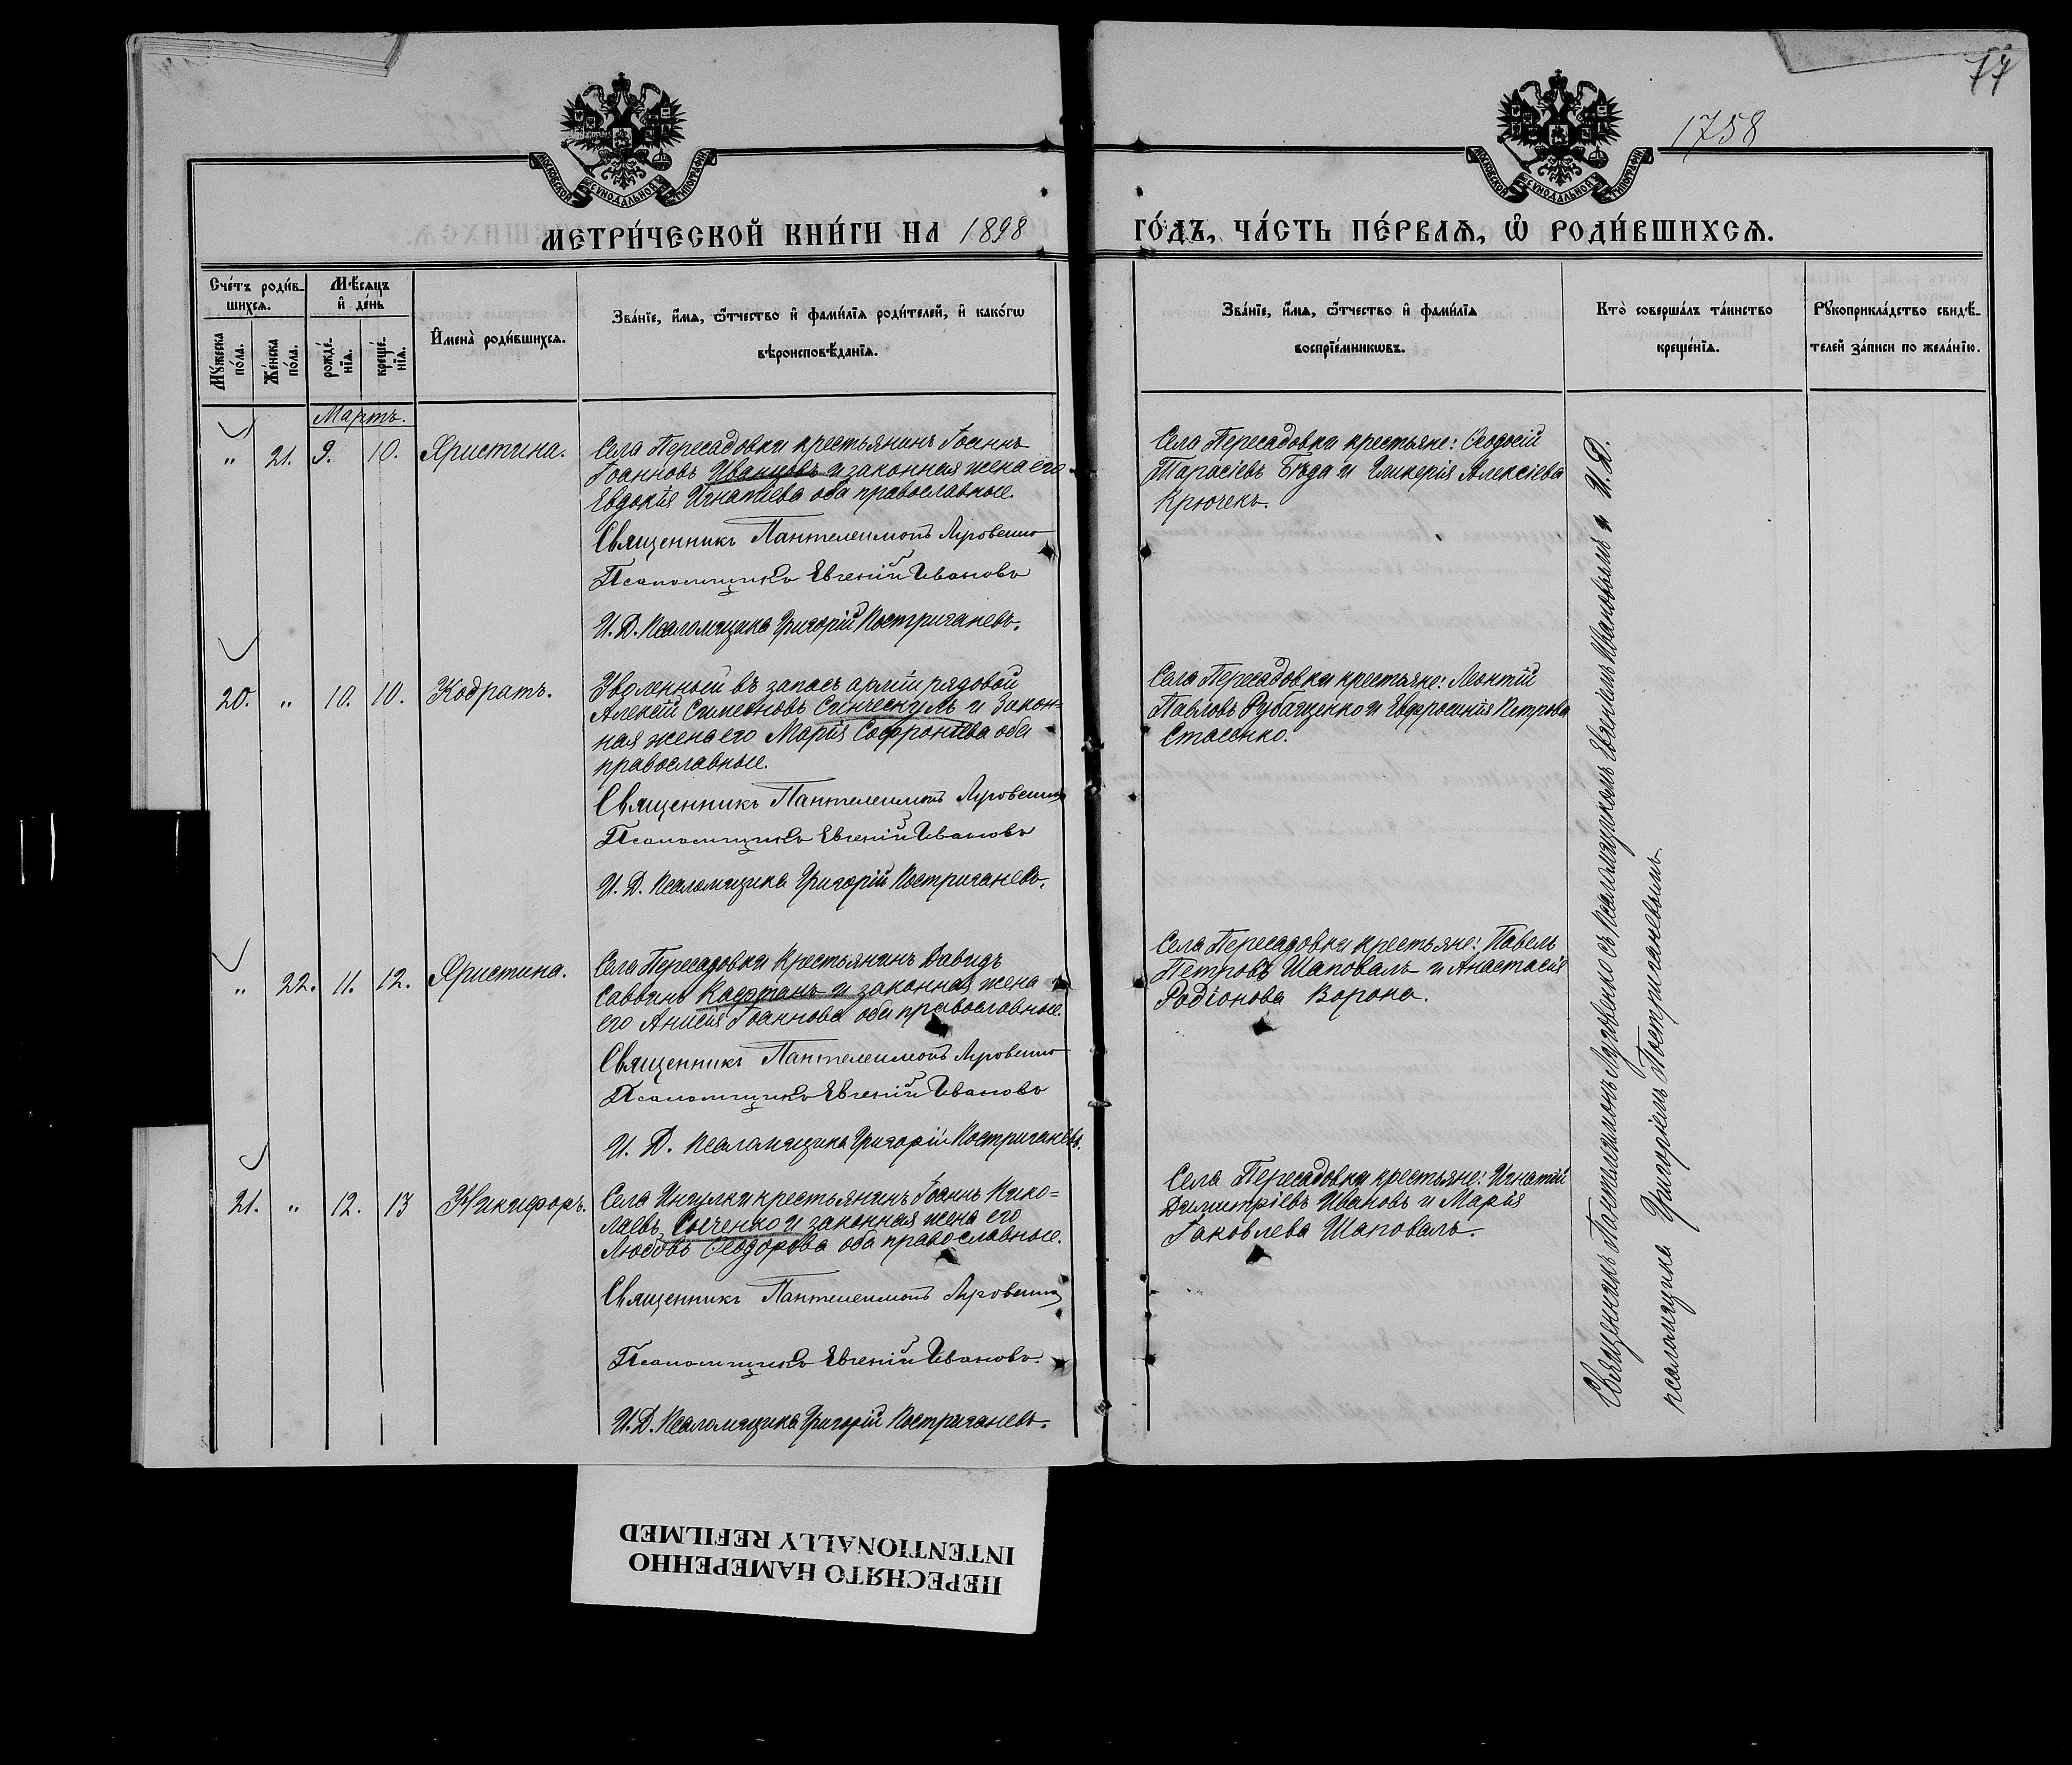 77
1758
МОСКОВСКОЙ СУНОДАЛЬНОЙ ТИПОГРАФІИ
МОСКОВСКОЙ СУНОДАЛЬНОЙ ТИПОГРАФІИ
МЕТРИ́ЧЕСКОЙ КНИ́ГИ НА 1898
ГО́ДЪ, ЧА́СТЬ ПЕ́РВАЯ, Ѡ РОДИ́ВШИХСЯ.
Сче́тъ роди́в-
шихся.
Му́жеска по́ла.
Же́нска по́ла.
Мѣ́сяцъ
и҆ де́нь
рожде́-
нїя.
креще́-
нїя.
И҆мена̀ роди́вшихся.
Зва́нїе, и҆́мя, ѻ҆́тчество и҆ фами́лїя роди́телей, и҆ како́гѡ
вѣроисповѣ́данїя.
Зва́нїе, и҆́мя, ѻ҆́тчество и҆ фами́лїя
воспрїе́мникѡвъ.
Кто̀ соверша́лъ та́инство
креще́нїя.
Рꙋкоприкла́дство свидѣ́-
телей за́писи по жела́нїю.
Мартъ.
" 21. 9. 10. Христина.
Села Пересадовки крестьянинъ Іоаннъ
Іоанновъ Иванцовъ и законная жена его
Евдокія Игнатіева оба православные.
Священникъ Пантелеимонъ
Псаломщикъ Евгеній Ивановъ
И. Д. Псаломщика Григорій Постригановъ.
Села Пересадовки крестьяне: Ѳеодосій
Тарасіевъ Бѣда и Гликерія Алексіева
Крючекъ.
20. " 10. 10. Кодратъ.
Уволенный въ запасъ арміи рядовой
Алексій Симеоновъ и закон-
ная жена его Марія Софроніева оба
православные.
Священникъ Пантелеимонъ
Псаломщикъ Евгеній Ивановъ
И. Д. Псаломщика Григорій Постригановъ.
Села Пересадовки крестьяне: Леонтій
Павловъ и Евфросинія Петрова
Стасенко.
" 22. 11. 12. Христина.
Села Пересадовки крестьянинъ Давидъ
Саввинъ Кафтанъ и законная жена
его Анисія Іоаннова оба православные.
Священникъ Пантелеимонъ
Псаломщикъ Евгеній Ивановъ
И. Д. Псаломщика Григорій Постригановъ.
Села Пересадовки крестьяне: Павелъ
Петровъ Шаповалъ и Анастасія
Родіонова Ворона.
21. " 12. 13 Никифоръ.
Села Ингулки крестьянинъ Іоаннъ Нико=
лаевъ и законная жена его
Любовь Ѳеодорова оба православные.
Священникъ Пантелеимонъ
Псаломщикъ Евгеній Ивановъ.
И. Д. Псаломщика Григорій Постригановъ.
Села Пересадовки крестьяне: Игнатій
Димитріевъ Ивановъ и Марія
Іаковлева Шаповалъ.
Священникъ Пантелеимонъ съ псаломщикомъ Евгеніемъ Ивановымъ и И. Д.
псаломщика Григоріемъ Постригановымъ.
ПЕРЕСНЯТО НАМЕРЕННО
INTENTIONALLY REFILMED